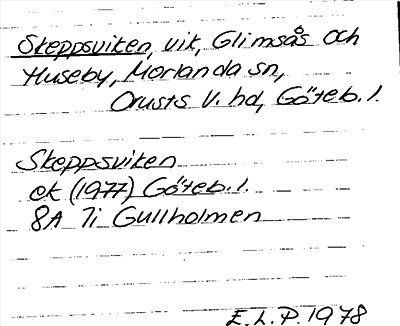 Skeppsviken, vik, Glimsås och
Huseby, Morlanda sn,
Orusts V. hd, Göteb. l.
Skeppsviken
ek (1977) Göteb. l.
8A 7i Gullholmen
E. L. P. 1978